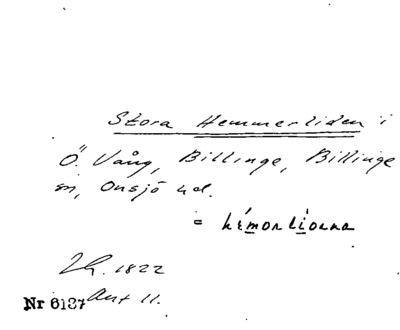 Stora Hemmerliden i
Ö. Vång, Billinge, Billinge
sn, Onsjö hd.
= hémorlíorna
Lh. 1822
Nr 6137 Ant 11.